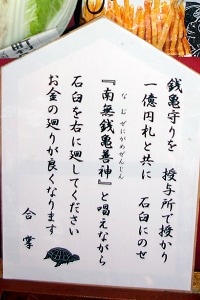 銭亀守りを 授与所で授かり
一億円札と共に 石臼にのせ
なむぜにがめぜんじん
『南無銭亀善神』と唱えながら
石臼を右に廻してください
お金の廻りが良くなります
合掌